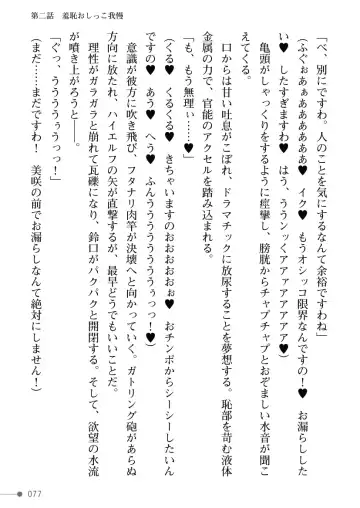 第二話　羞恥おしっこ我慢
「べ、別にですわ。人のことを気にするなんて余裕ですわね」
（ふぐぉぁぁあああああ♥　イク♥　もうオシッコ限界なんですの♥　お漏らしした
い♥　したすぎますわ♥　はう、ううンッくアアアアアアア♥）
亀頭がしゃっくりをするように痙攣し、膀胱からチャプチャプとおぞましい水音が聞こ
える。
口からは甘い吐息がこぼれ、ドラマチックに放尿することを夢想する。恥部を苛む液体
金属の力で、官能のアクセルを踏み込まれる。
「も、もう無理ぃ……♥」
（くる♥　くるくる♥　きちゃいますのおおおおぉ♥　おチンポからシーシーしたいん
ですの♥　あう♥　へう♥　ふんうううううううぅっっ！　♥）
意識が彼方に吹き飛び、フタナリ肉竿が決壊へと向かっていく。ガトリング砲があらぬ
方向に放たれ、ハイエルフの矢が直撃するが、最早どうでもいいことだ。
理性がガラガラと崩れて瓦礫になり、鈴口がパクパクと開閉する。そして、欲望の水流
が噴き上がろうと――。
「ぐっ、うううううぅうっっ！」
（まだ……まだですわ！　美咲の前でお漏らしなんて絶対にしません！）
077